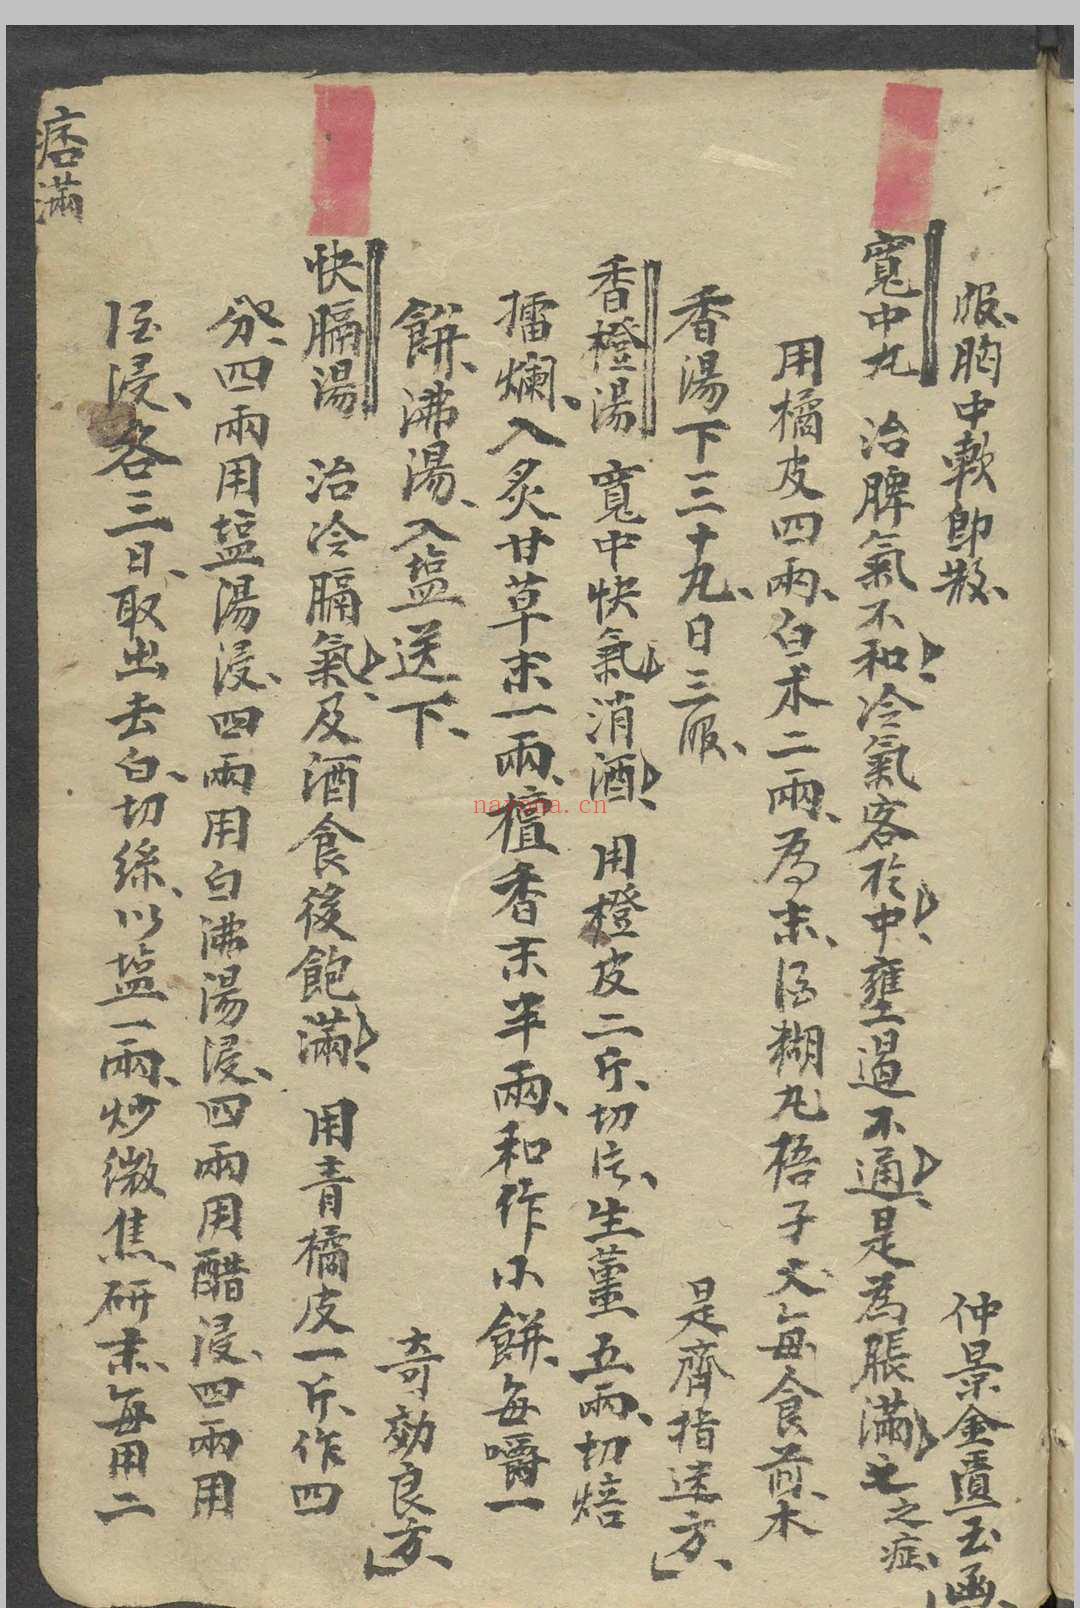 服、胸中軟即散、 仲景金匱玉函、
寬中丸 治脾氣不和、冷氣客於中、壅遏不通、是為脹滿之症、
用橘皮四兩、白朮二兩、為末、酒糊丸梧子大、每食前、木
香湯下三十丸、日三服、 是齊指迷方、
香橙湯 寬中快氣消酒、 用橙皮二斤、切片、生薑五兩、切焙
擂爛、入炙甘草末一兩、檀香末半兩、和作小餅、每嚼一
餅、沸湯、入塩送下、 奇効良方、
快膈湯 治冷膈氣、及酒食後飽滿、 用青橘皮一斤、作四
分、四兩用塩湯浸、四兩用白沸湯浸、四兩用醋浸、四兩用
酒浸、各三日、取出去白、切絲、以塩一兩、炒微焦、研末、每用二
痞滿
nayona.cn